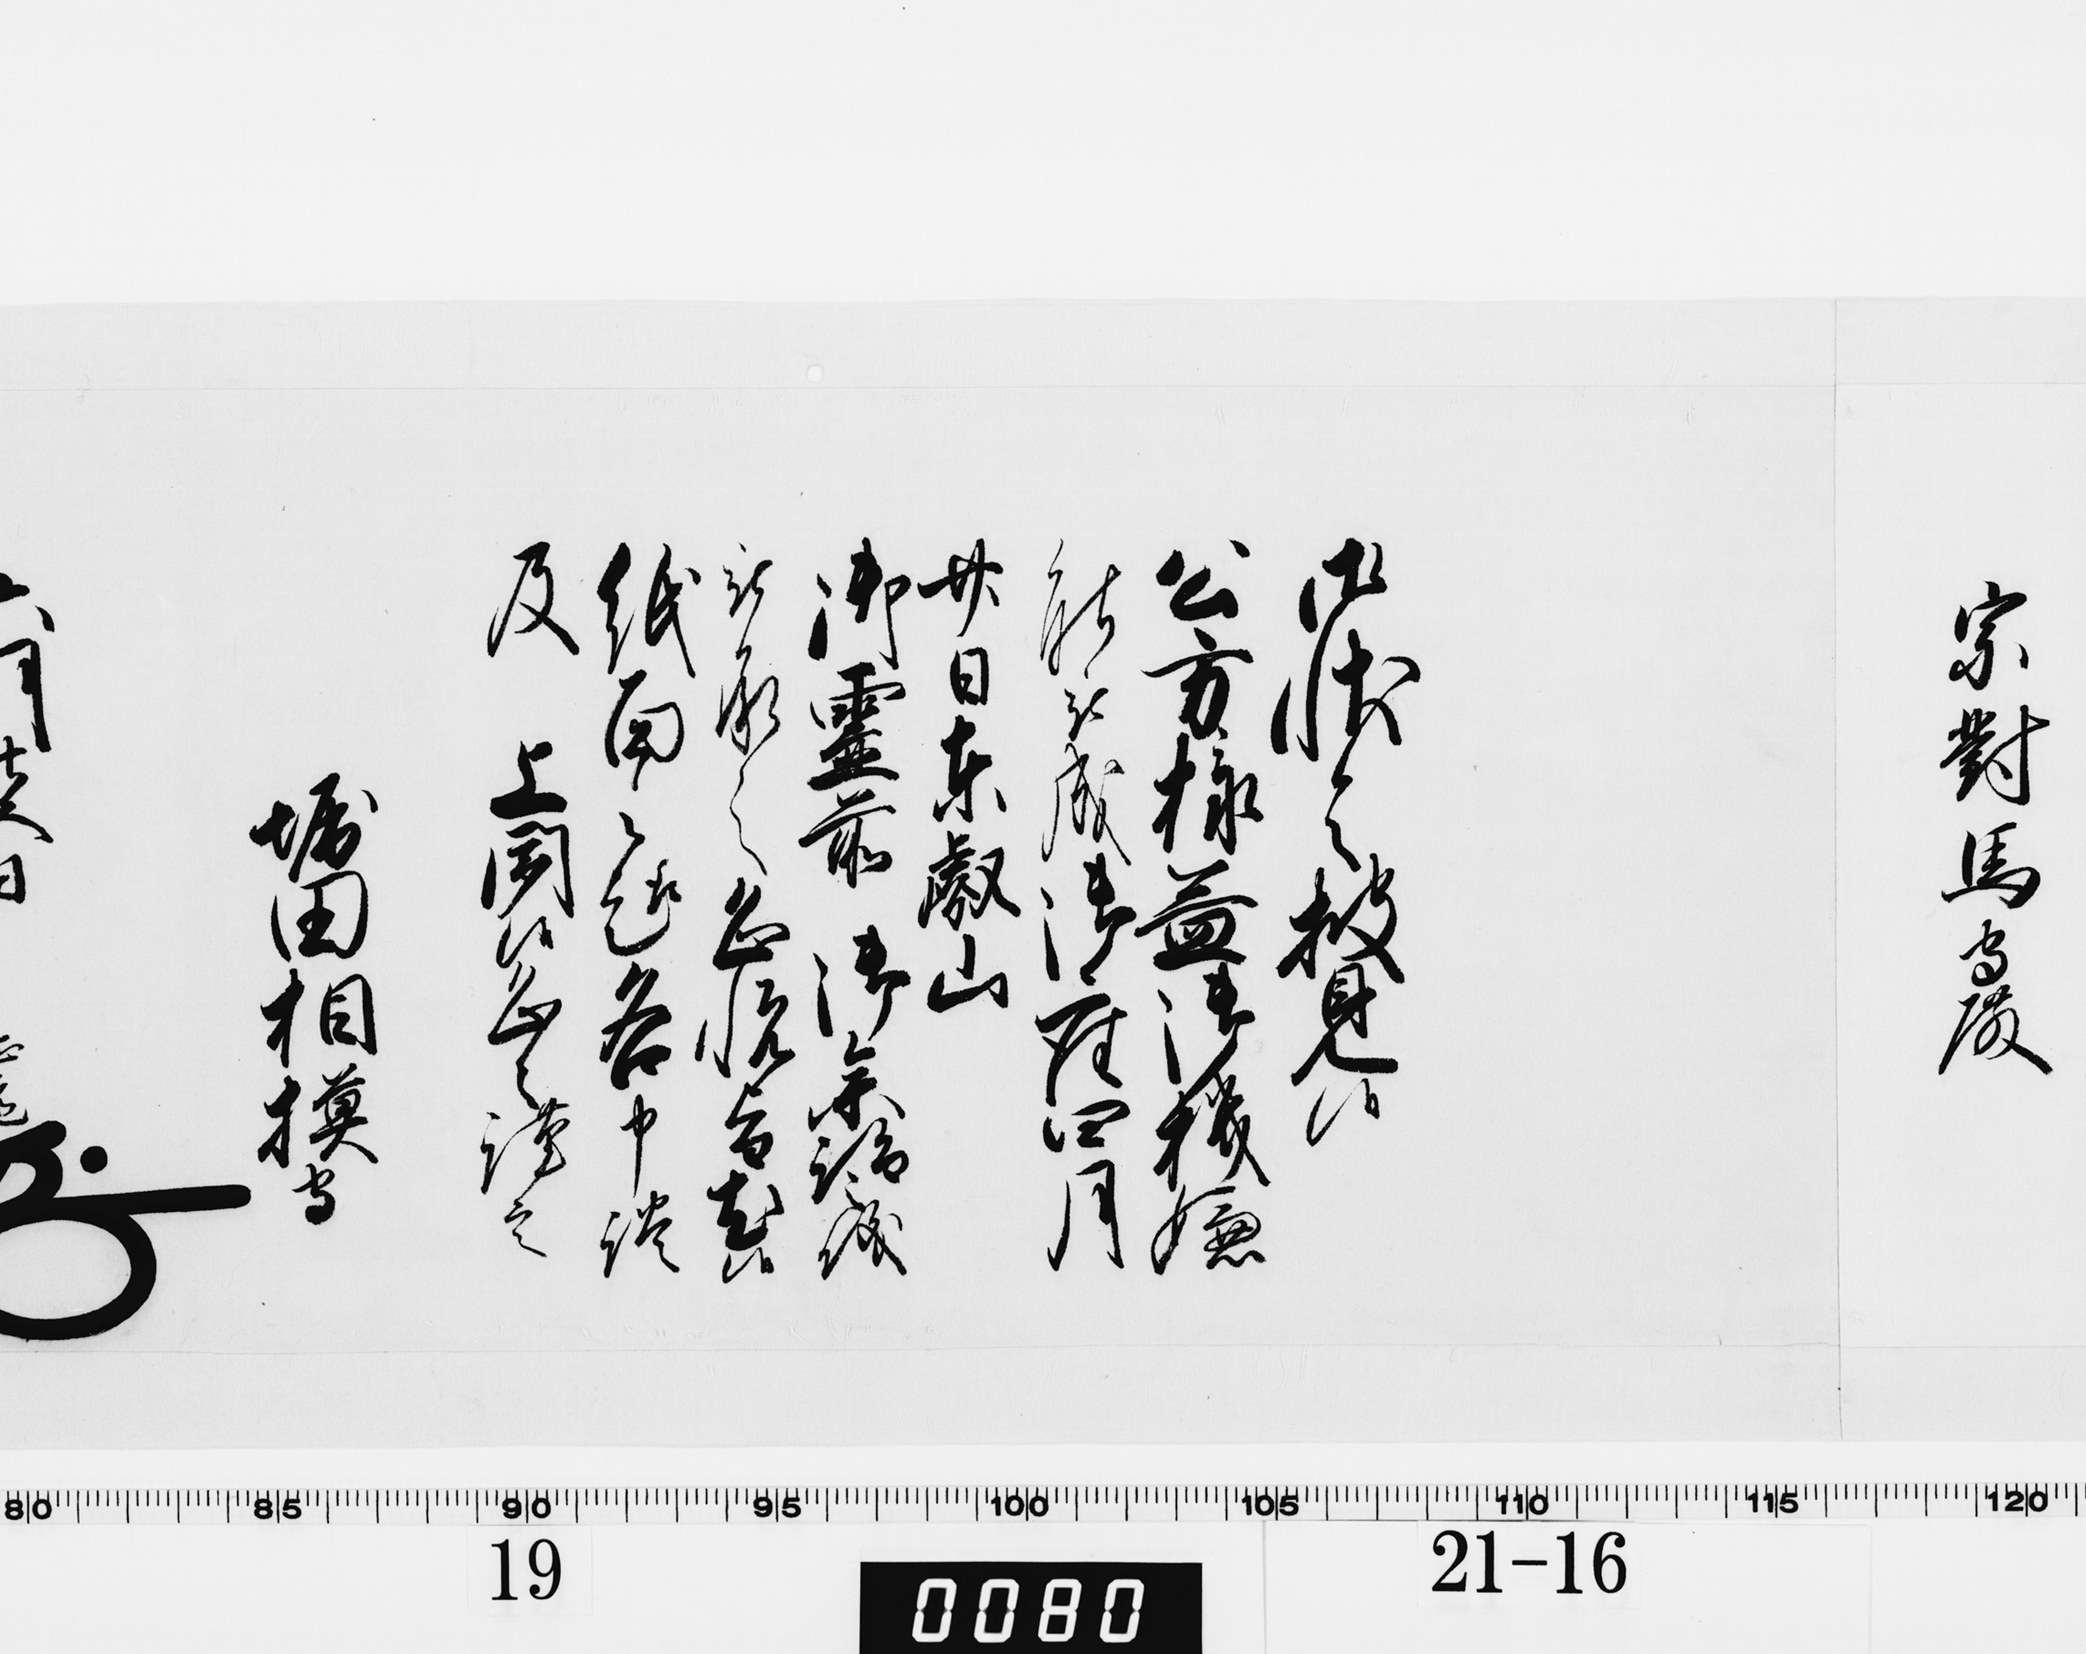 宗對馬守殿
御状令披見候
公方様益御機嫌
能被成御座四月
廿日東叡山
御霊前 御参詣儀
被承之急悦旨尤候
紙面之趣各申談
及 上聞候恐々謹言
堀田相模守
六月
日
80 85 90 95 100 105 110 115 120
19
0080
21-16